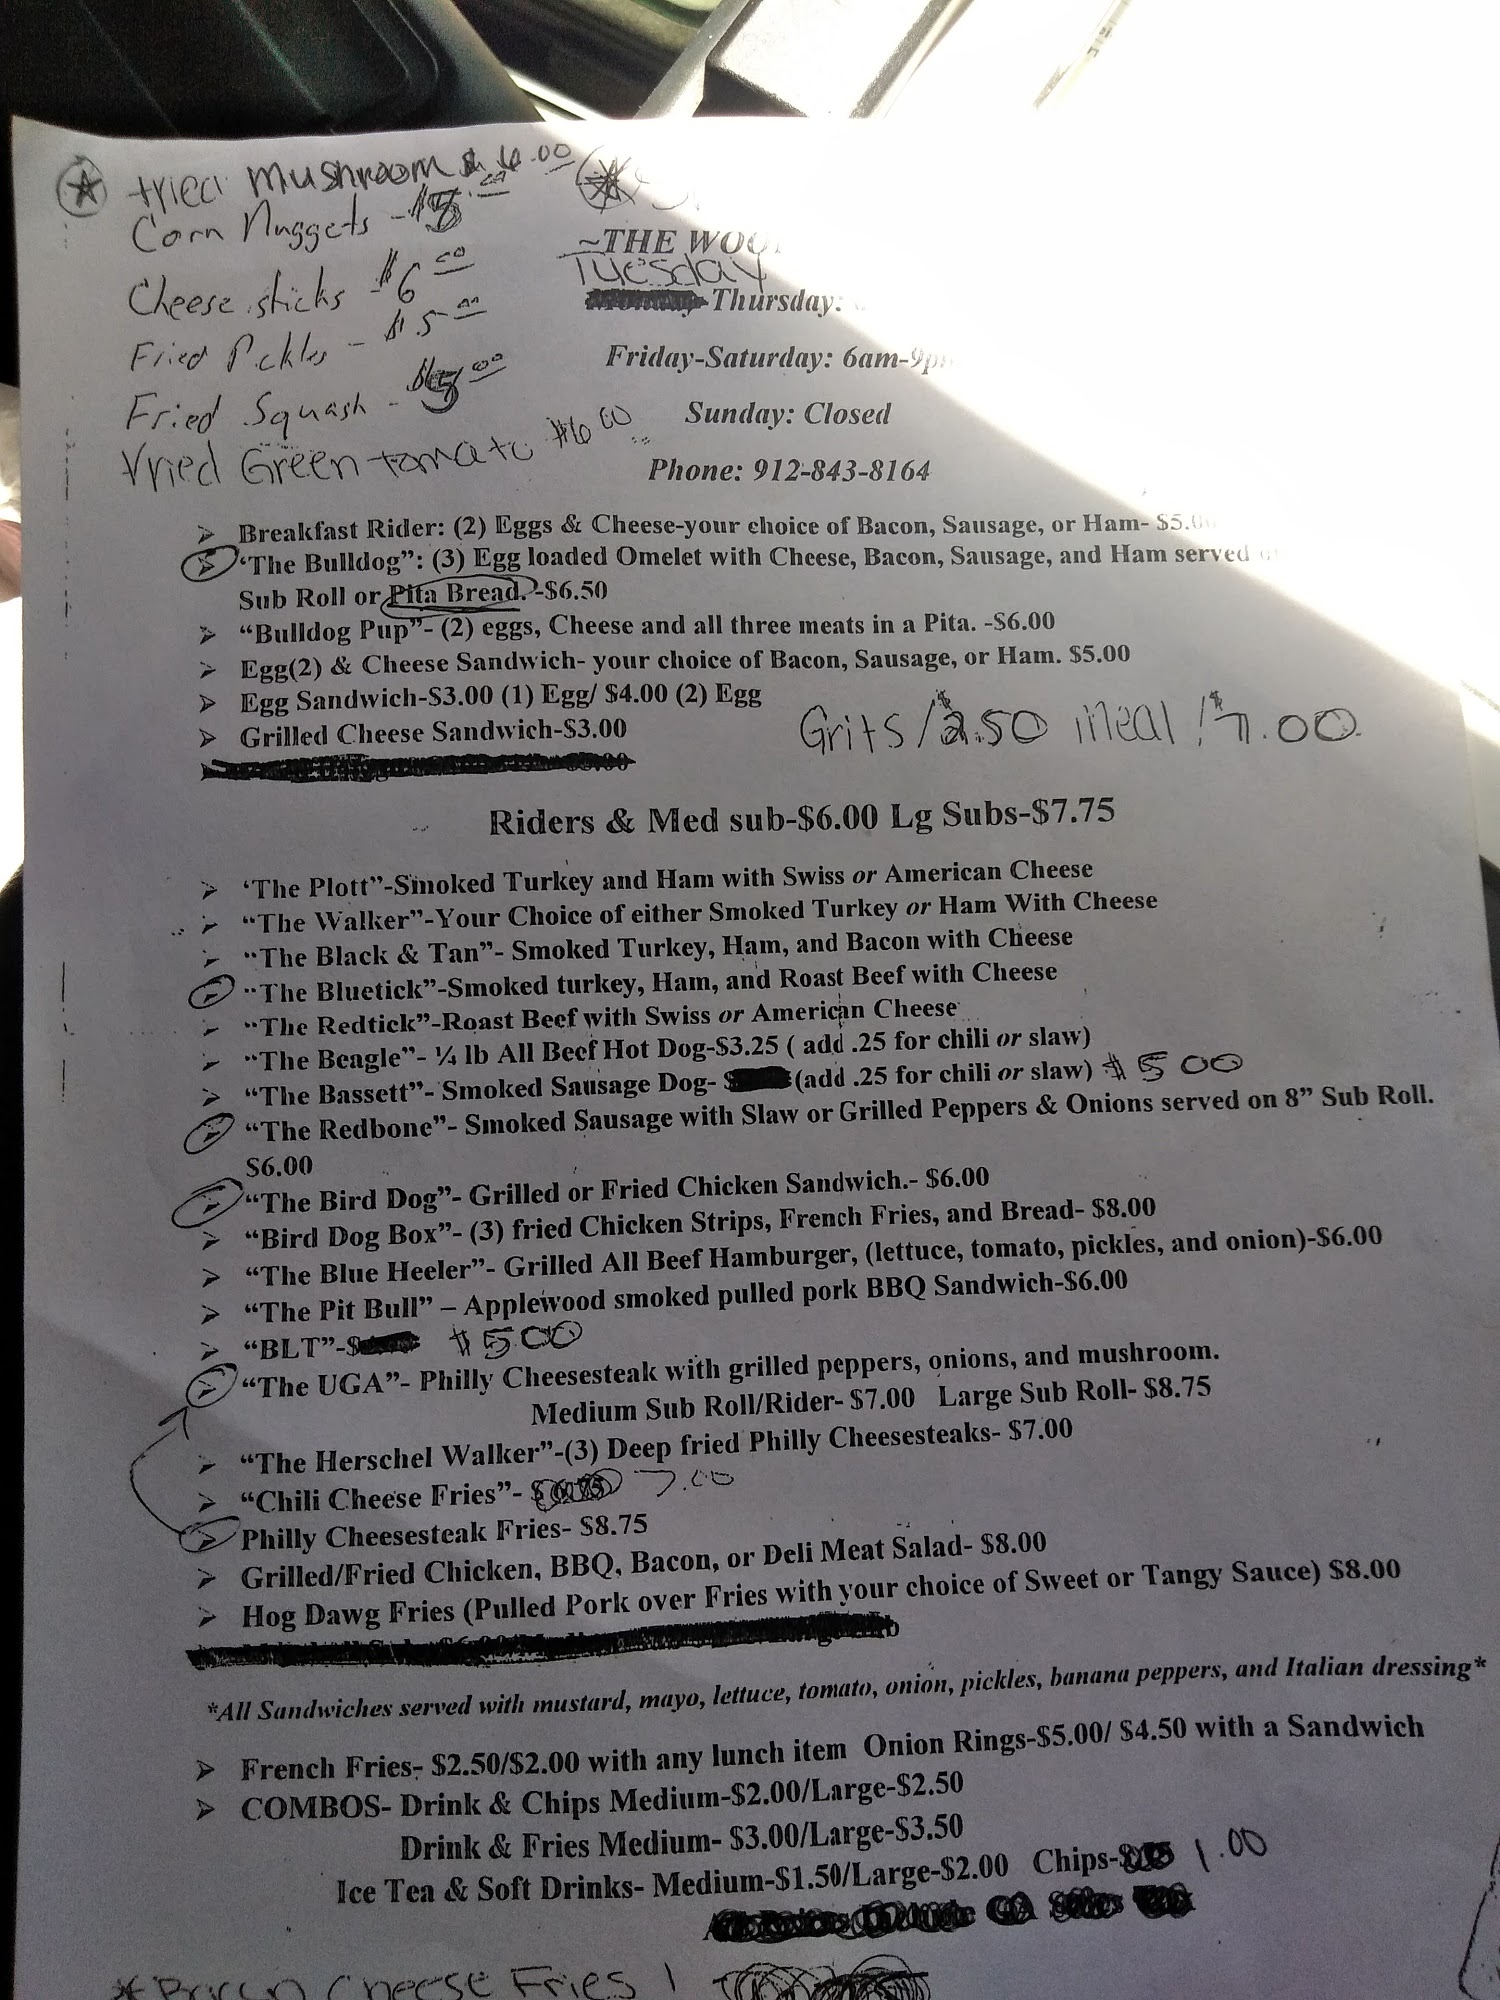 fried mushroom $6.00
Corn Nuggets - $5.00
Cheese sticks - $6.00
Fried Pickles - $5.00
Fried Squash - $5.00
Fried Green tomato $6.00
~THE
Tuesday
Thursday:
Friday-Saturday: 6am-9pm
Sunday: Closed
Phone: 912-843-8164
➢ Breakfast Rider: (2) Eggs & Cheese-your choice of Bacon, Sausage, or Ham- $5.00
➢ 'The Bulldog”: (3) Egg loaded Omelet with Cheese, Bacon, Sausage, and Ham served
Sub Roll or Pita Bread. -$6.50
➢ “Bulldog Pup”- (2) eggs, Cheese and all three meats in a Pita. -$6.00
➢ Egg(2) & Cheese Sandwich- your choice of Bacon, Sausage, or Ham. $5.00
➢ Egg Sandwich-$3.00 (1) Egg/ $4.00 (2) Egg
➢ Grilled Cheese Sandwich-$3.00
Grits /$2.50 meal /$7.00
Riders & Med sub-$6.00 Lg Subs-$7.75
➢ ‘The Plott”-Smoked Turkey and Ham with Swiss or American Cheese
➢ “The Walker”-Your Choice of either Smoked Turkey or Ham With Cheese
➢ “The Black & Tan”- Smoked Turkey, Ham, and Bacon with Cheese
➢ “The Bluetick”-Smoked turkey, Ham, and Roast Beef with Cheese
➢ “The Redtick”-Roast Beef with Swiss or American Cheese
➢ “The Beagle”- ¼ lb All Beef Hot Dog-$3.25 ( add .25 for chili or slaw)
➢ “The Bassett”- Smoked Sausage Dog- $ (add .25 for chili or slaw) $5.00
➢ “The Redbone”- Smoked Sausage with Slaw or Grilled Peppers & Onions served on 8” Sub Roll.
$6.00
➢ “The Bird Dog”- Grilled or Fried Chicken Sandwich.- $6.00
➢ “Bird Dog Box”- (3) fried Chicken Strips, French Fries, and Bread- $8.00
➢ “The Blue Heeler”- Grilled All Beef Hamburger, (lettuce, tomato, pickles, and onion)-$6.00
➢ “The Pit Bull” – Applewood smoked pulled pork BBQ Sandwich-$6.00
➢ “BLT”-$ $5.00
➢ “The UGA”- Philly Cheesesteak with grilled peppers, onions, and mushroom.
Medium Sub Roll/Rider- $7.00 Large Sub Roll- $8.75
➢ “The Herschel Walker”-(3) Deep fried Philly Cheesesteaks- $7.00
➢ “Chili Cheese Fries”- $6.75 7.00
➢ Philly Cheesesteak Fries- $8.75
➢ Grilled/Fried Chicken, BBQ, Bacon, or Deli Meat Salad- $8.00
➢ Hog Dawg Fries (Pulled Pork over Fries with your choice of Sweet or Tangy Sauce) $8.00
*All Sandwiches served with mustard, mayo, lettuce, tomato, onion, pickles, banana peppers, and Italian dressing*
➢ French Fries- $2.50/$2.00 with any lunch item Onion Rings-$5.00/ $4.50 with a Sandwich
➢ COMBOS- Drink & Chips Medium-$2.00/Large-$2.50
Drink & Fries Medium- $3.00/Large-$3.50
Ice Tea & Soft Drinks- Medium-$1.50/Large-$2.00 Chips- 1.00
*Bacon Cheese Fries